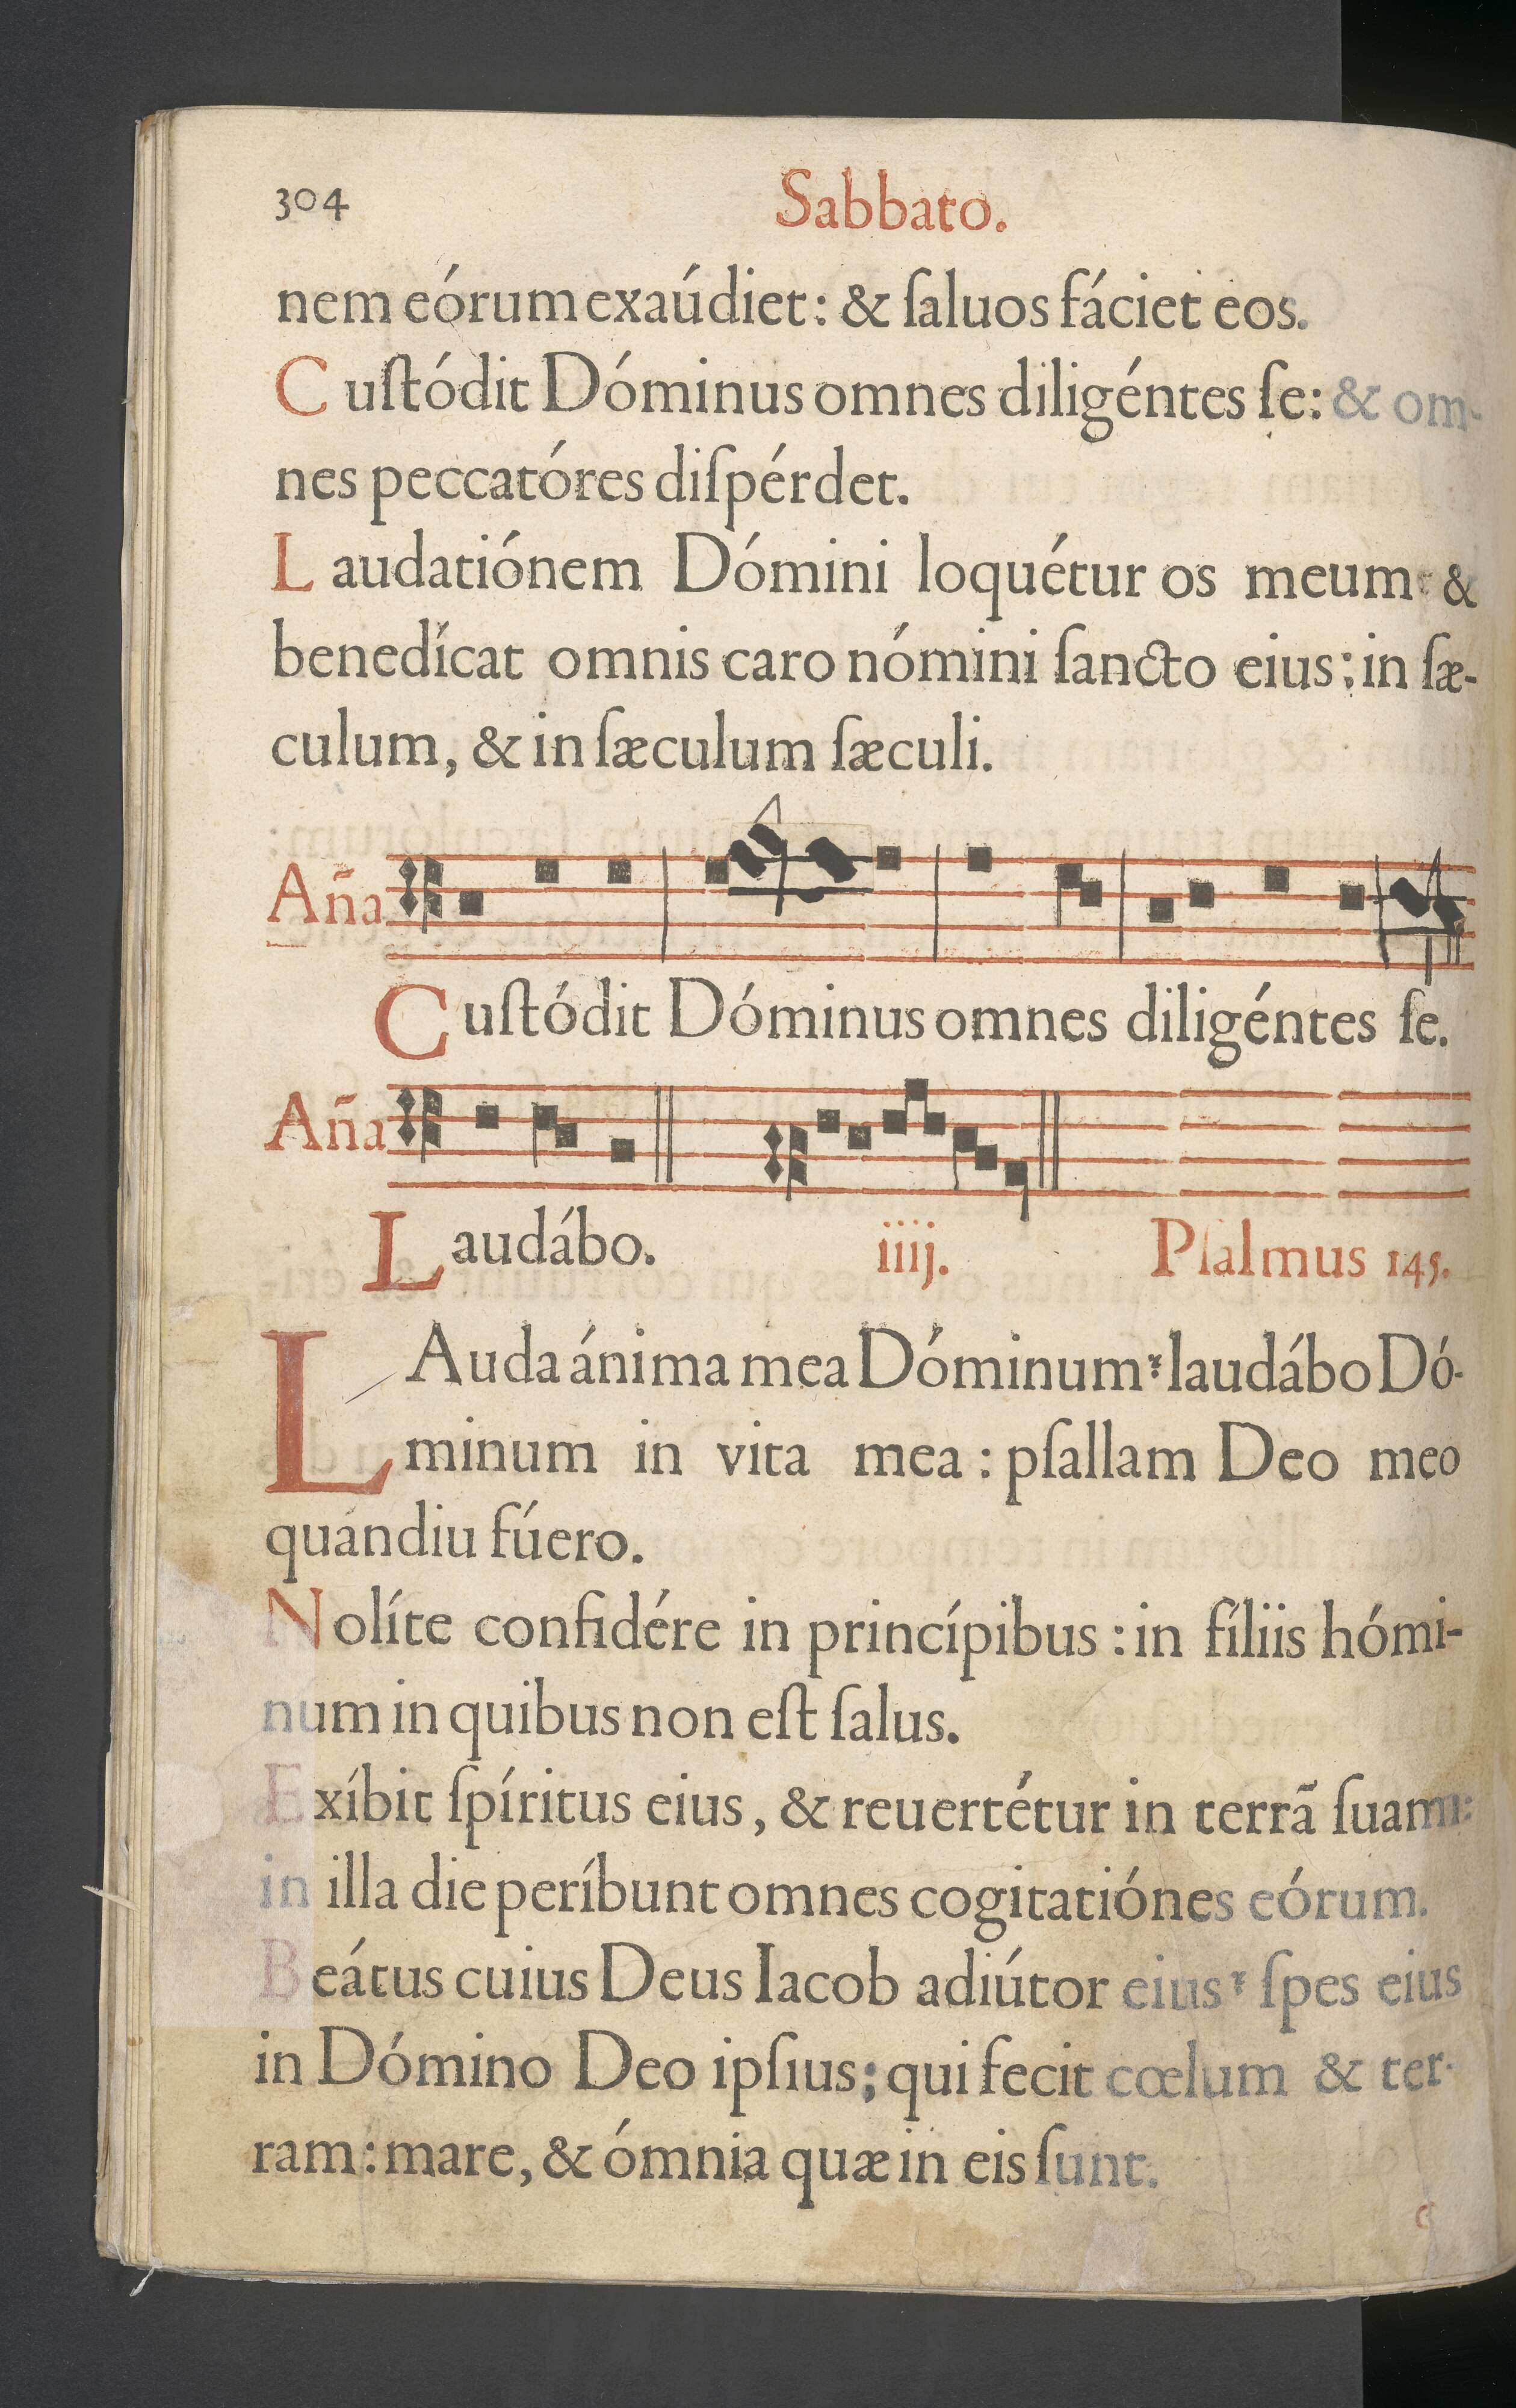 304
Sabbato.
nem eórum exaúdiet: & ſaluos fáciet eos.
Cuſtódit Dóminus omnes diligéntes ſe: & om-
nes peccatóres diſpérdet.
Laudatiónem Dómini loquétur os meum: &
benedícat omnis caro nómini ſancto eius: in ſæ-
culum, & in ſæculum ſæculi.
Aña
Cuſtódit Dóminus omnes diligéntes ſe.
Aña
Laudábo. iiij. Pſalmus 145.
LAuda ánima mea Dóminum: laudábo Dó-
minum in vita mea: pſallam Deo meo
quándiu fúero.
Nolíte confidére in princípibus: in fíliis hómi-
num in quibus non eſt ſalus.
Exíbit ſpíritus eius, & reuertétur in terrã ſuam:
in illa die períbunt omnes cogitatiónes eórum.
Beátus cuius Deus Iacob adiútor eius: ſpes eius
in Dómino Deo ipſius; qui fecit cœlum & ter-
ram: mare, & ómnia quæ in eis ſunt.